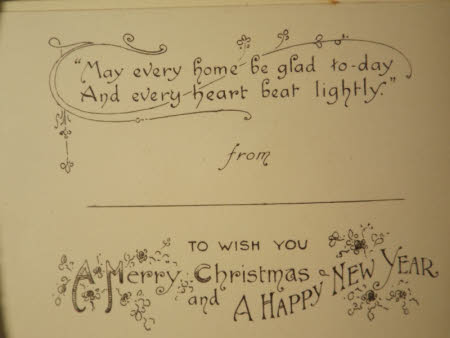 "May every home be glad to-day
And every heart beat lightly."
from
TO WISH YOU
A Merry Christmas
and A HAPPY NEW YEAR